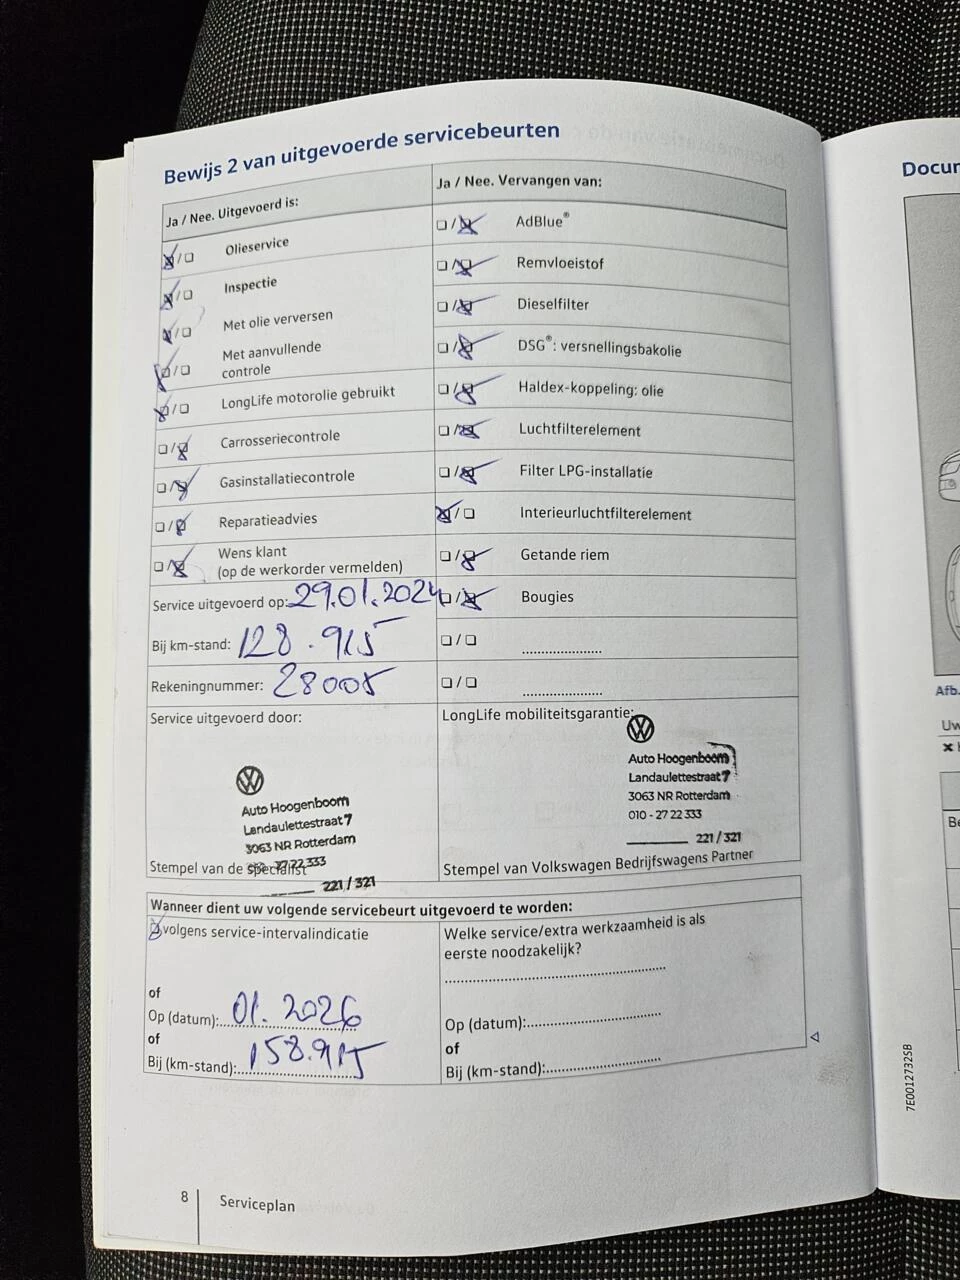 Bewijs 2 van uitgevoerde servicebeurten
Ja / Nee. Uitgevoerd is:
Olieservice
Inspectie
Met olie verversen
Met aanvullende
controle
LongLife motorolie gebruikt
Carrosseriecontrole
Gasinstallatiecontrole
Reparatieadvies
Wens klant
(op de werkorder vermelden)
Service uitgevoerd op: 29.01.2024
Bij km-stand: 128.915
Rekeningnummer: 28005
Ja / Nee. Vervangen van:
AdBlue®
Remvloeistof
Dieselfilter
DSG®: versnellingsbakolie
Haldex-koppeling: olie
Luchtfilterelement
Filter LPG-installatie
Interieurluchtfilterelement
Getande riem
Bougies
Service uitgevoerd door:
Auto Hoogenboom
Landaulettestraat 7
3063 NR Rotterdam
010 - 27 22 333
221 / 321
Stempel van de specialist
LongLife mobiliteitsgarantie:
Auto Hoogenboom
Landaulettestraat 7
3063 NR Rotterdam
010 - 27 22 333
221 / 321
Stempel van Volkswagen Bedrijfswagens Partner
Wanneer dient uw volgende servicebeurt uitgevoerd te worden:
volgens service-intervalindicatie
of
Op (datum): 01.2026
of
Bij (km-stand): 158.915
Welke service/extra werkzaamheid is als
eerste noodzakelijk?
Op (datum):
of
Bij (km-stand):
8 Serviceplan
7E0012732SB
Docum
Afb.
Uw
Be